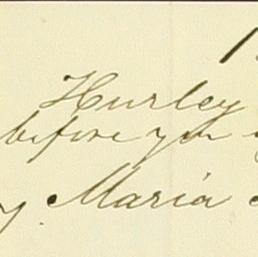 Hurley
before you
Maria